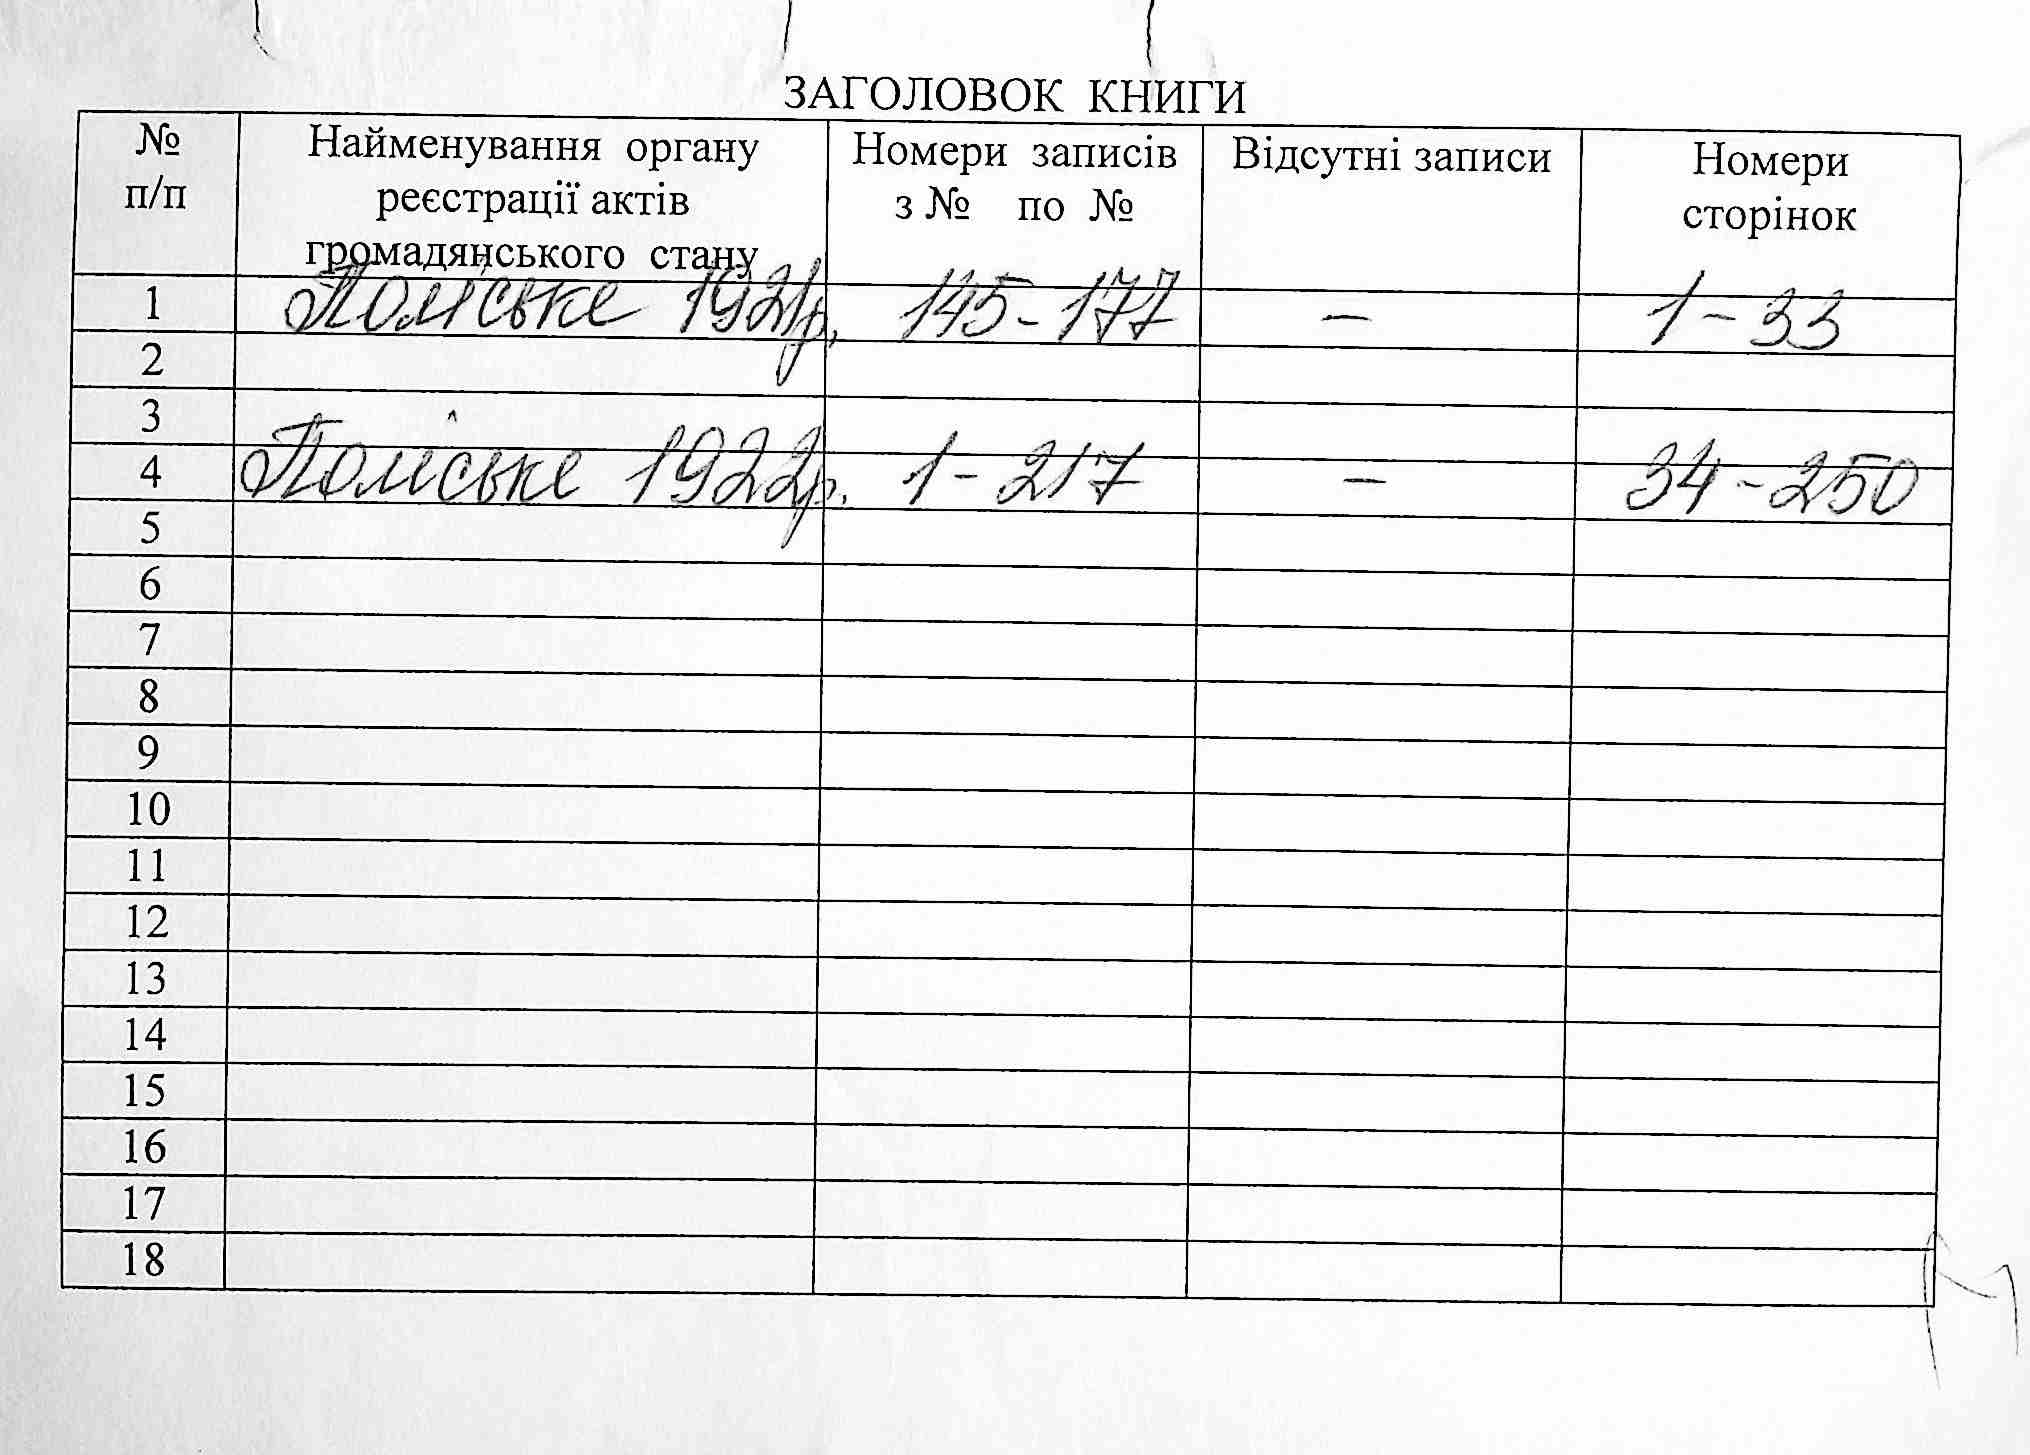 ЗАГОЛОВОК КНИГИ
№ п/п Найменування органу реєстрації актів громадянського стану Номери записів з № по № Відсутні записи Номери сторінок
1 Поліське 1921р. 145-177 – 1-33
2
3
4 Поліське 1922р. 1-217 – 34-250
5
6
7
8
9
10
11
12
13
14
15
16
17
18